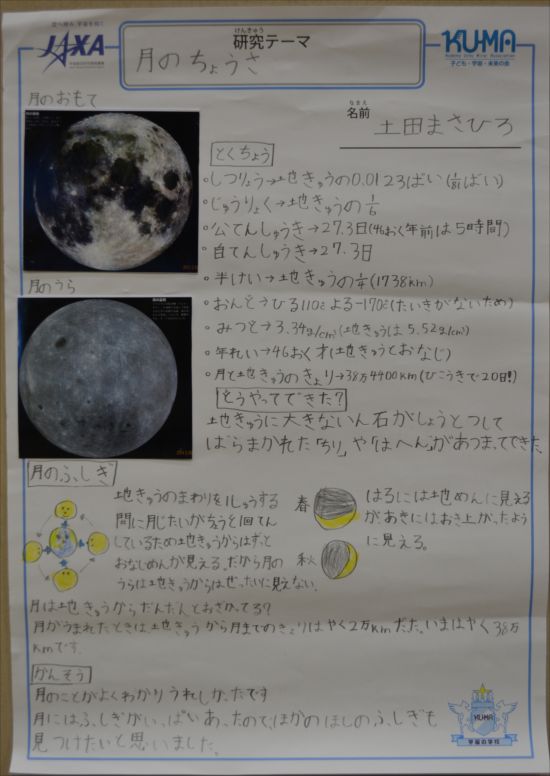 JAXA
けんきゅう
研究テーマ
月のちょうさ
KU-MA
子ども・宇宙・未来の会
月のおもて
なまえ
名前
土田まさひろ
とくちょう
・しつりょう→地きゅうの0.0123ばい(1/81ばい)
・じゅうりょく→地きゅうの1/6
・公てんしゅうき→27.3日(46おく年前は5時間)
・自てんしゅうき→27.3日
月のうら
・半けい→地きゅうの1/4(1738km)
・おんど→ひる110℃よる-170℃(たいきがないため)
・みつど→3.34g/cm³(地きゅうは5.52g/cm³)
・年れい→46おく才(地きゅうとおなじ)
・月と地きゅうのきょり→38万4400km(ひこうきで20日!)
どうやってできた?
地きゅうに大きないん石がしょうとつして
ばらまかれた「ちり」や「はへん」があつまってできた。
月のふしぎ
地きゅうのまわりを1しゅうする
間に月じたいが
しているため地きゅうからはずっと
おなじめんが見える。だから月の
うらは地きゅうからはぜったいに見えない。
春
秋
はるには地めんに見える
があきにはおき上がったよう
に見える。
月は地きゅうからだんだんとおざかってる?
月がうまれたときは地きゅうから月までのきょりはやく2万kmだった。いまはやく38万
kmです。
かんそう
月のことがよくわかりうれしかったです
月にはふしぎがいっぱいあったので、ほかのほしのふしぎも
見つけたいと思いました。
KU-MA
宇宙の学校